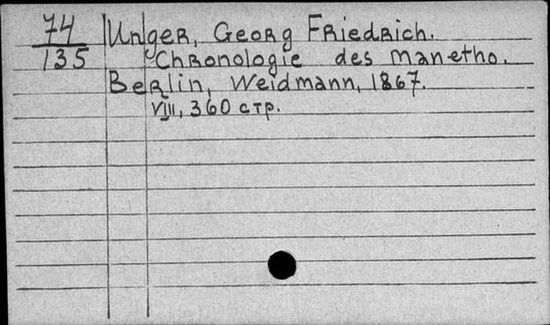 74 Unger, Georg Friedrich.
135 Chronologie des Manetho.
Berlin, Weidmann, 1867.
VIII, 360 стр.